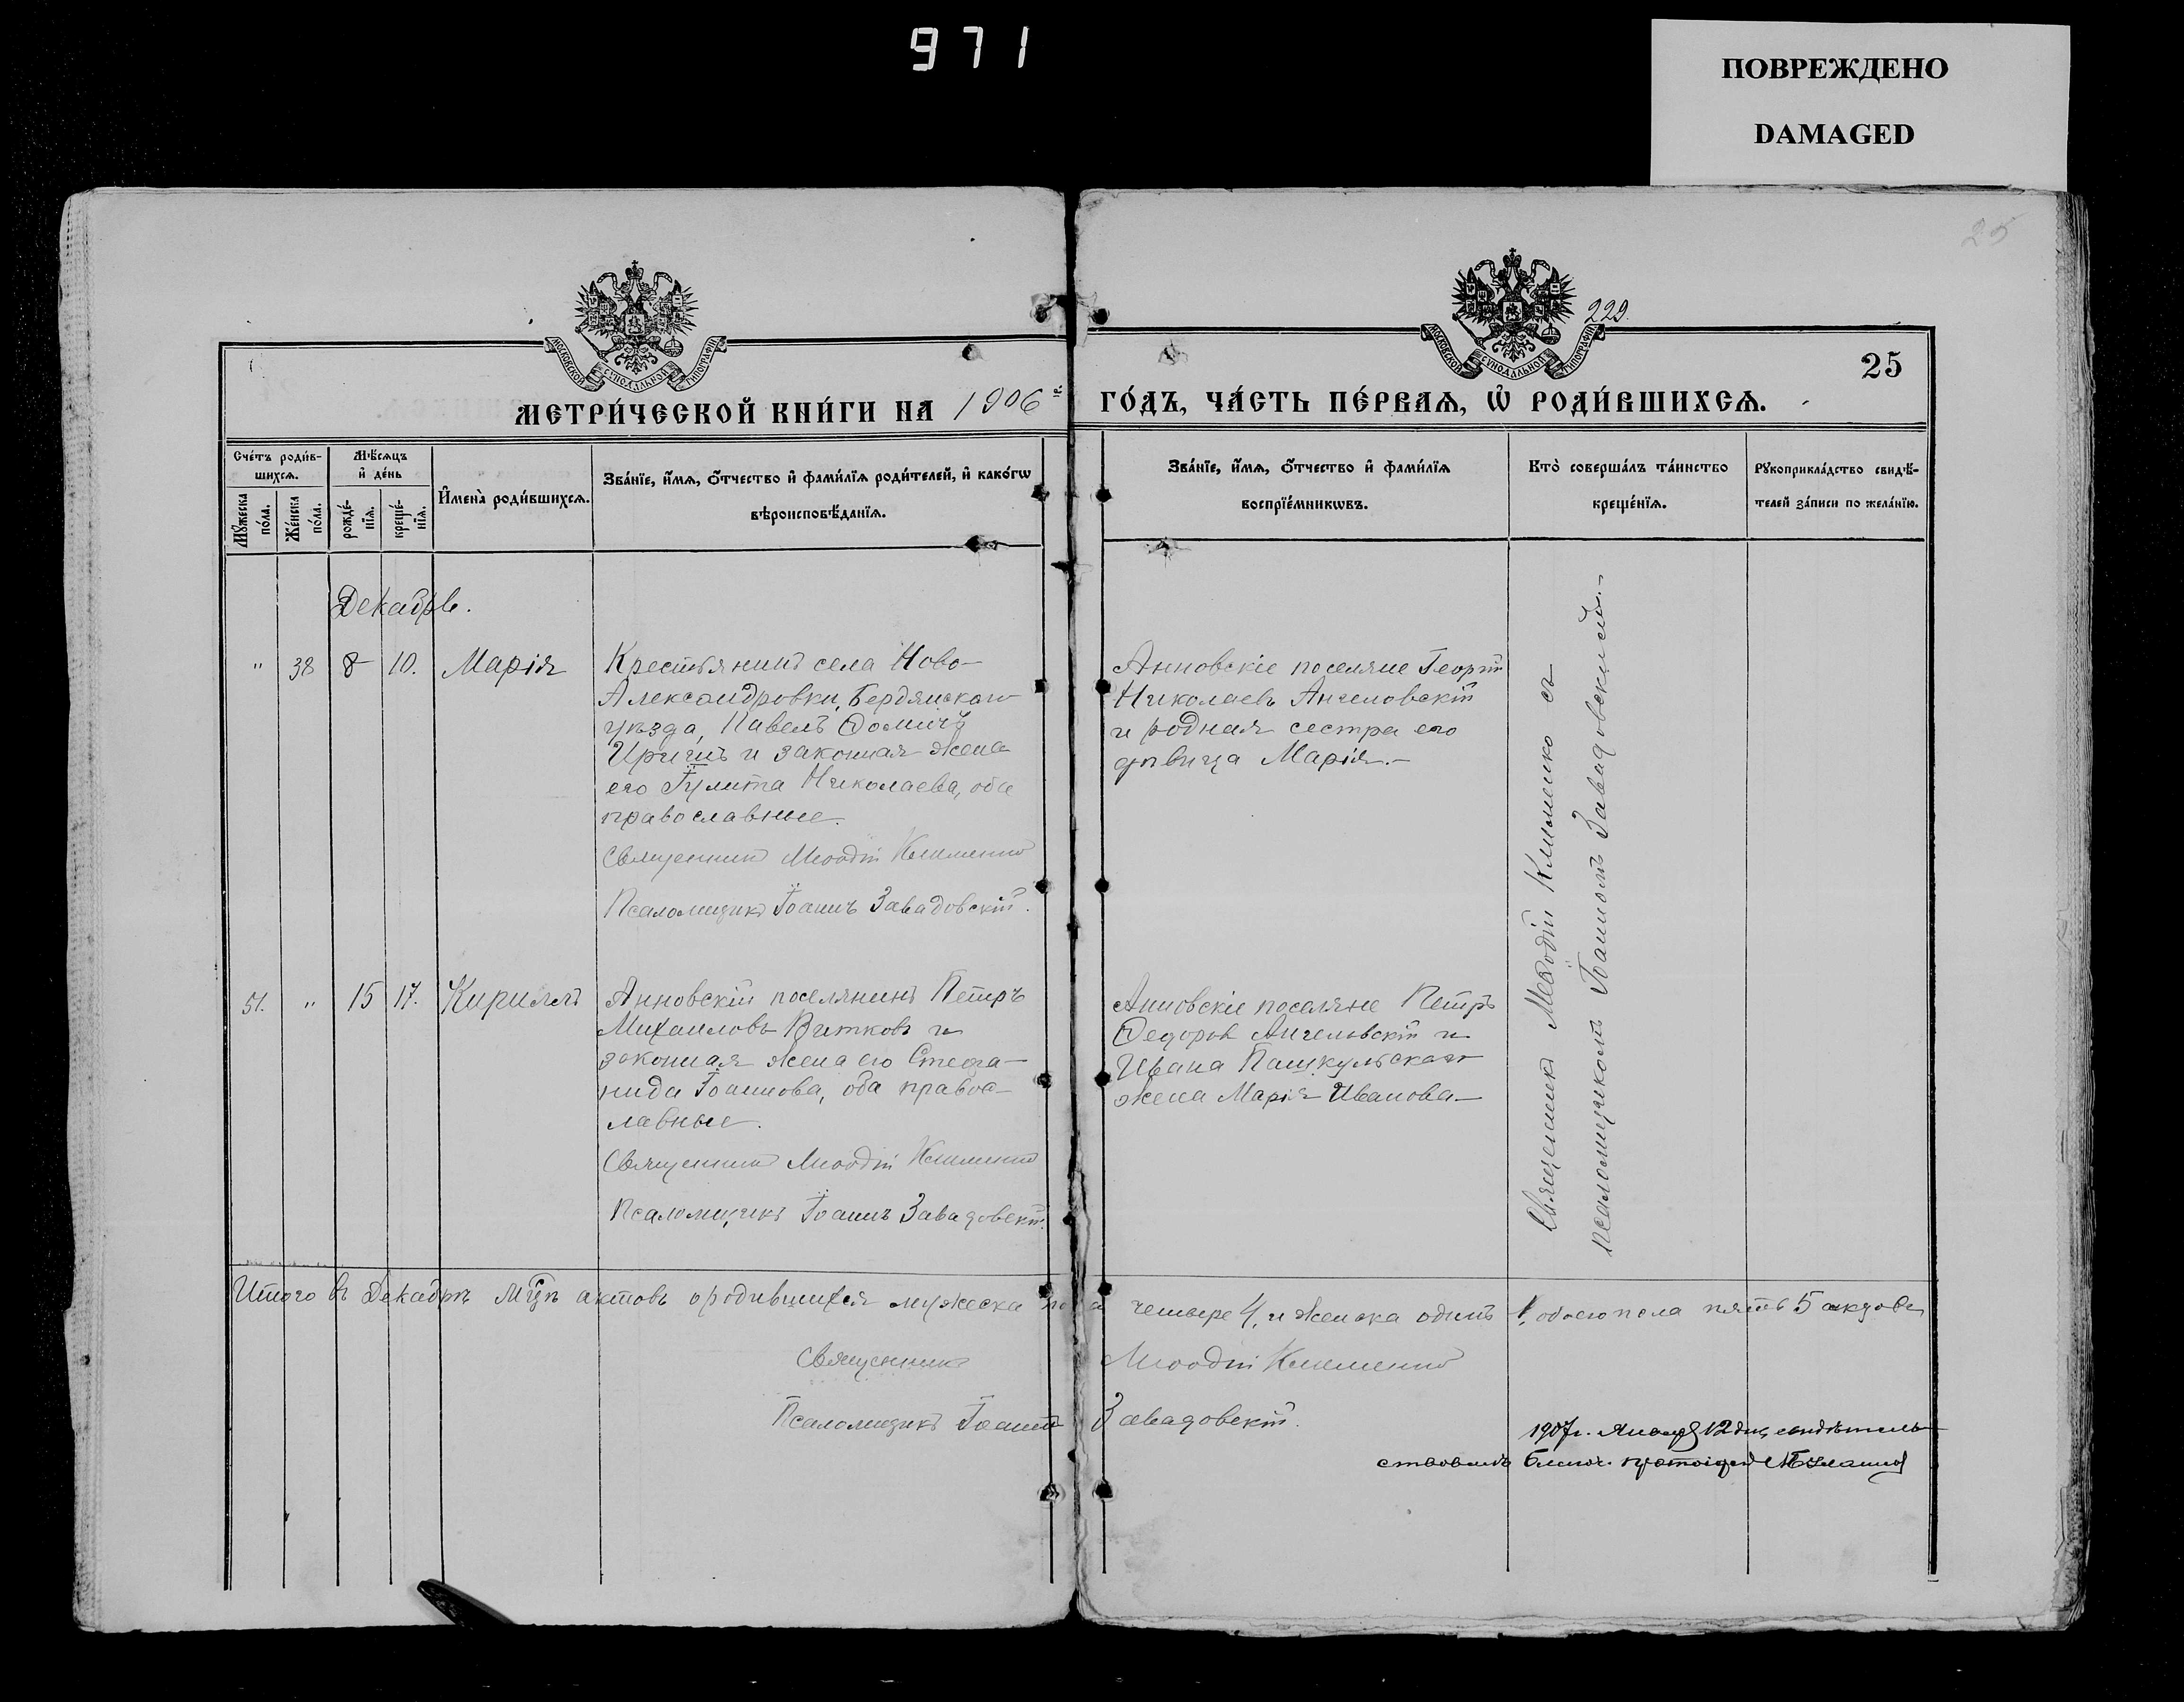 971
ПОВРЕЖДЕНО
DAMAGED
25
229.
МОСКОВСКОЙ СУНОДАЛЬНОЙ ТИПОГРАФІИ
МОСКОВСКОЙ СУНОДАЛЬНОЙ ТИПОГРАФІИ
25
МЕТРИ́ЧЕСКОЙ КНИ́ГИ НА 1906й ГО́ДЪ, ЧА́СТЬ ПЕ́РВАѦ, Ѽ РОДИ́ВШИХСѦ.
Сче́тъ роди́в-
шихсѧ.
Мꙋ́жеска по́ла.
Же́нска по́ла.
Мѣ́сѧцъ
и҆ де́нь
рожде́-
нїѧ.
креще́-
нїѧ.
И҆мена̀ роди́вшихсѧ.
Зва́нїе, и҆́мѧ, ѻ҆́тчество и҆ фами́лїѧ роди́телей, и҆ како́гѡ
вѣроисповѣ́данїѧ.
Зва́нїе, и҆́мѧ, ѻ҆́тчество и҆ фами́лїѧ
воспрїе́мникѡвъ.
Кто̀ соверша́лъ та́инство
креще́нїѧ.
Рꙋкоприкла́дство свидѣ́-
телей за́писи по жела́нїю.
Декабрь.
" 38 8 10. Марія
Крестьянинъ села Ново-
Александровки, Бердянскаго
уѣзда, Павелъ Ѳомичъ
и законная жена
его Іулита Николаева, оба
православные.
Священникъ Меѳодій Клименко
Псаломщикъ Іоаннъ Завадовскій.
Анновскіе поселяне Георгій
Николаевъ Ангеловскій
и родная сестра его
дѣвица Марія.-
Священникъ Меѳодій Клименко съ
псаломщикомъ Іоанномъ Завадовскимъ.-
51. " 15 17. Кириллъ
Анновскій поселянинъ Петръ
Михаиловъ Витковъ и
законная жена его Стефа-
нида Іоаннова, оба правос-
лавные.
Священникъ Меѳодій Клименко
Псаломщикъ Іоаннъ Завадовскій.
Анновскіе поселяне Петръ
Ѳедоровъ Ангеловскій и
Ивана Пашкульскаго
жена Марія Иванова-
Итого въ Декабрѣ мцѣ актовъ о родившихся мужеска пола четыре 4, и женска одинъ 1, обоего пола пять 5 актовъ
Священникъ Меѳодій Клименко
Псаломщикъ Іоаннъ Завадовскій.
1907г. Января 12 дня свидѣтель-
ствовалъ Благоч.